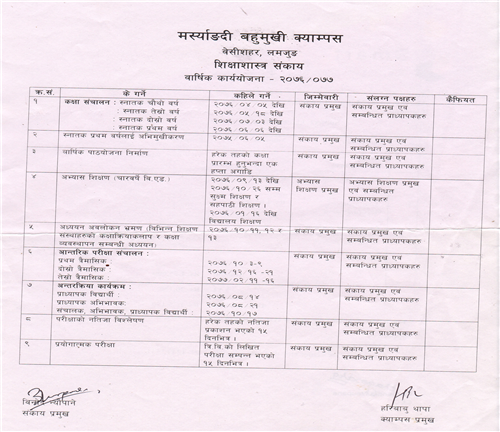 मर्स्याङदी बहुमुखी क्याम्पस
बेसीशहर, लमजुङ
शिक्षाशास्त्र संकाय
वार्षिक कार्ययोजना - २०७६/०७७
क्र.सं. के गर्ने कहिले गर्ने जिम्मेवारी संलग्न पक्षहरु कैफियत
१ कक्षा संचालन : स्नातक चौथो वर्ष २०७६.०४.०५ देखि संकाय प्रमुख संकाय प्रमुख एवं
: स्नातक तेस्रो वर्ष २०७६.०५.१८ देखि सम्वन्धित प्राध्यापकहरु
: स्नातक दोस्रो वर्ष २०७६.०७.०३ देखि
: स्नातक प्रथम वर्ष २०७६.०६.०६ देखि
२ स्नातक प्रथम वर्षलाई अभिमुखीकरण २०७५.०६.०५ संकाय प्रमुख संकाय प्रमुख एवं
सम्वन्धित प्राध्यापकहरु
३ वार्षिक पाठयोजना निर्माण हरेक तहको कक्षा संकाय प्रमुख संकाय प्रमुख एवं
प्रारम्भ हुनुभन्दा एक सम्वन्धित प्राध्यापकहरु
हप्ता अगाडि
४ अभ्यास शिक्षण (चारवर्षे बि.एड.) २०७६/०९/१३ देखि अभ्यास अभ्यास शिक्षण प्रमुख
२०७६/१०/२६ सम्म शिक्षण प्रमुख एवं सम्वन्धित
सुक्ष्म शिक्षण र प्राध्यापकहरु
सहपाठी शिक्षण ।
२०७६/०९/१६ देखि
विद्यालय शिक्षण
५ अध्ययन अवलोकन भ्रमण (विभिन्न शिक्षण २०७६/१०/११, १२ र संकाय प्रमुख संकाय प्रमुख एवं
संस्थाहरुको कक्षाक्रियाकलाप र कक्षा १३ सम्वन्धित प्राध्यापकहरु
व्यवस्थापन सम्वन्धी अध्ययन)
६ आन्तरिक परीक्षा संचालन : संकाय प्रमुख संकाय प्रमुख एवं
प्रथम त्रैमासिक २०७६/१०/३-९ सम्वन्धित प्राध्यापकहरु
दोस्रो त्रैमासिक : २०७६/१२/१६-२१
तेस्रो त्रैमासिक : २०७७/०२/११-१६
७ अन्तरक्रिया कार्यक्रम : संकाय प्रमुख संकाय प्रमुख एवं
प्राध्यापक विद्यार्थी : २०७६/०८/१४ सम्वन्धित प्राध्यापकहरु
प्राध्यापक अभिभावक: २०७६/०८/२१
संचालक, अभिभावक, प्राध्यापक विद्यार्थी : २०७६/१०/१७
८ परीक्षाको नतिजा विश्लेषण हरेक तहको नतिजा संकाय प्रमुख संकाय प्रमुख एवं
प्रकाशन भएको १५ सम्वन्धित प्राध्यापकहरु
दिनभित्र ।
९ प्रयोगात्मक परीक्षा त्रि.वि.को लिखित संकाय प्रमुख संकाय प्रमुख एवं
परीक्षा सम्पन्न भएको सम्वन्धित प्राध्यापकहरु
१५ दिनभित्र ।
न्यौपाने
संकाय प्रमुख
हरिबाबु थापा
क्याम्पस प्रमुख